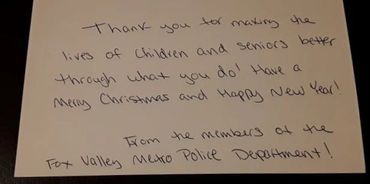 Thank you for making the
lives of children and seniors better
through what you do! Have a
Merry Christmas and Happy New Year!
From the members of the
Fox Valley Metro Police Department!